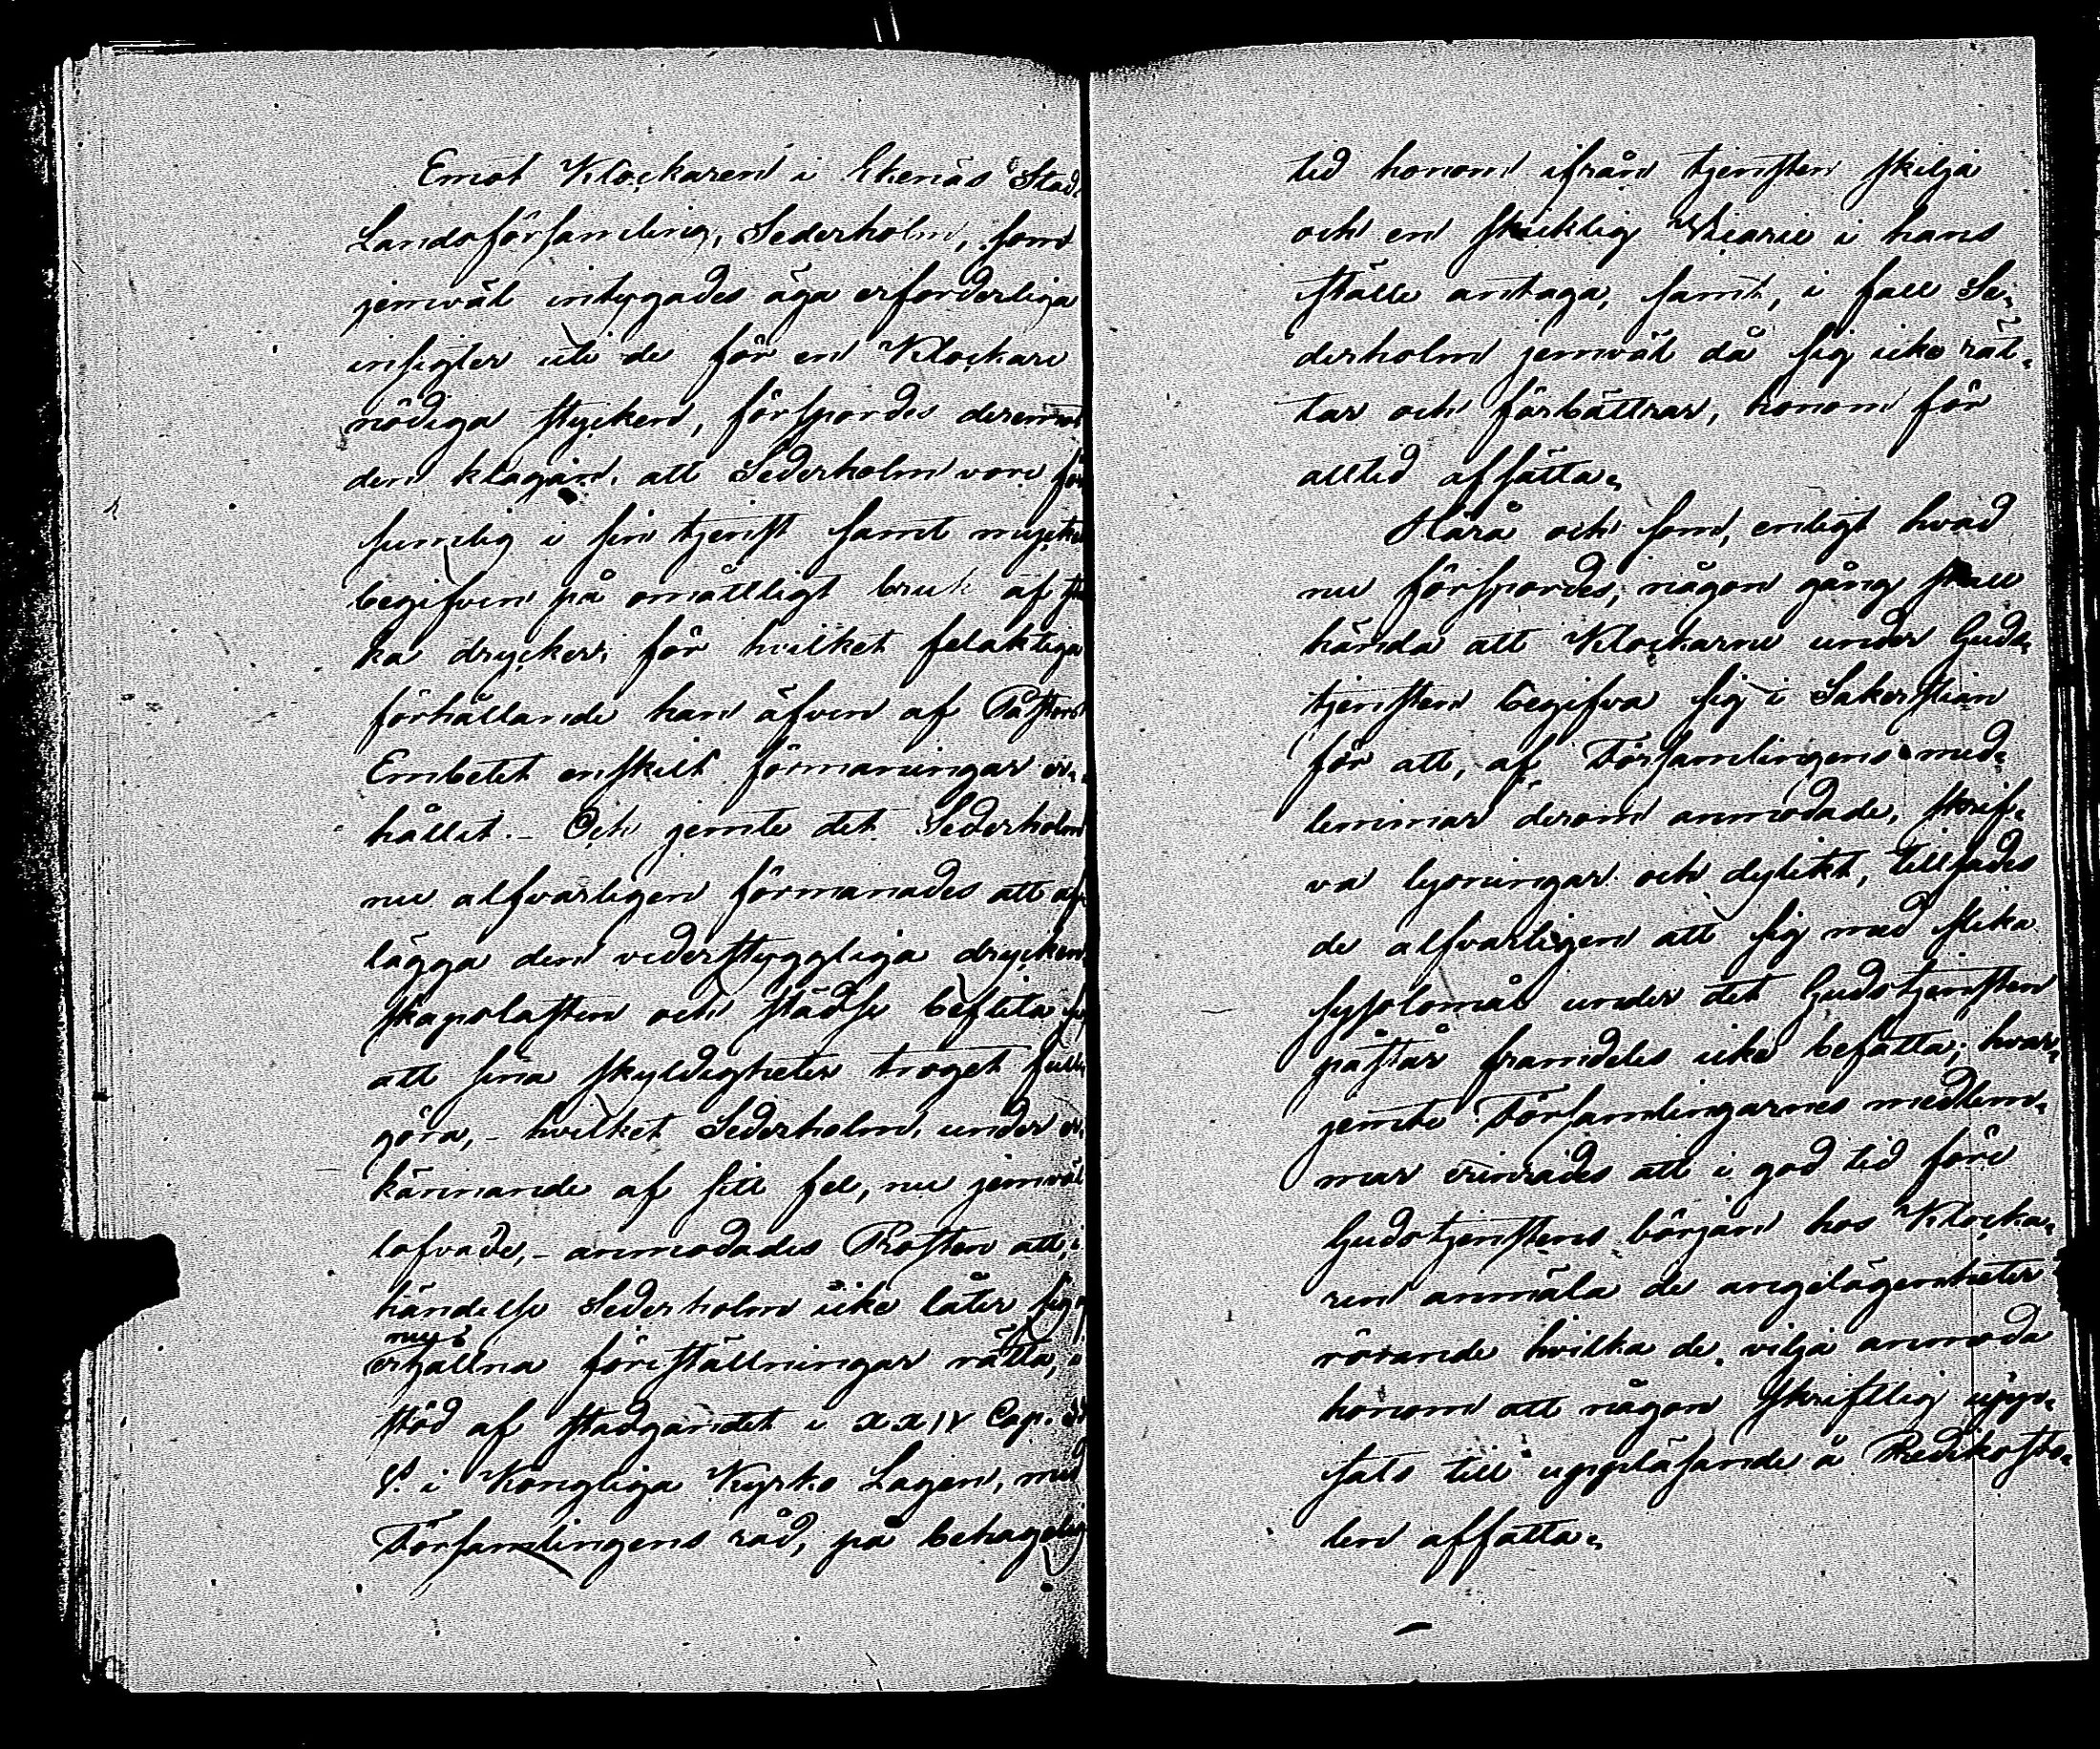 Emot Klockaren i Ekenäs Stad
Landsförsamling, Sederholm, som
jemväl intygades äga erforderliga
insigter uti de för en Klockare
nödiga stycken, förspordes deremot
den klagan, att Sederholm vore för
sumlig i sin tjenst samt mycket
begifven på omåttligt bruk af star
ka drycker, för hvilket felaktiga
förhållande han äfven af Pastors
Embetet enskilt förmaningar er-
hållit. – Och jemte det Sederholm
nu alfvarligen förmanades att af
lägga den vederstyggliga dryckens
skapslasten och städse beflita sig
att sina skyldigheter troget full
göra, – hvilket Sederholm, under er
kännande af sitt fel, nu jemväl
lofvade, – anmodades Prosten att, i
händelse Sederholm icke låter sig af
nu
erhållna föreställningar rätta, i
stöd af stadgandet i XXIV Cap.
§. i Kongliga Kyrko Lagen, med
Församlingens råd, på behagelig
tid honom ifrån tjensten skilja
och en skicklig Vicarie i hans
ställe antaga, samt, i fall Se-
derholm jemväl då sig icke rät-
tar och förbättrar, honom för
alltid afsätta.
Härå och som, enligt hvad
nu förspordes, någon gång skall
hända att Klockarne under Guds
tjensten begifva sig i Sakerstian
för att, af Församlingens med-
lemmar derom anmodade, skrif-
va lysningar och dylikt, tillsades
de alfvarligen att sig med slika
sysslomål under det Gudstjensten
påstår framdeles icke befatta; hvar-
jemte Församlingarnes medlem-
mar erinrades att i god tid före
Gudstjenstens början hos Klocka-
ren anmäla de angelägenheter
rörande hvilka de vilja anmoda
honom att någon skriftlig upp-
sats till uppläsande å Predikosto-
len affatta.